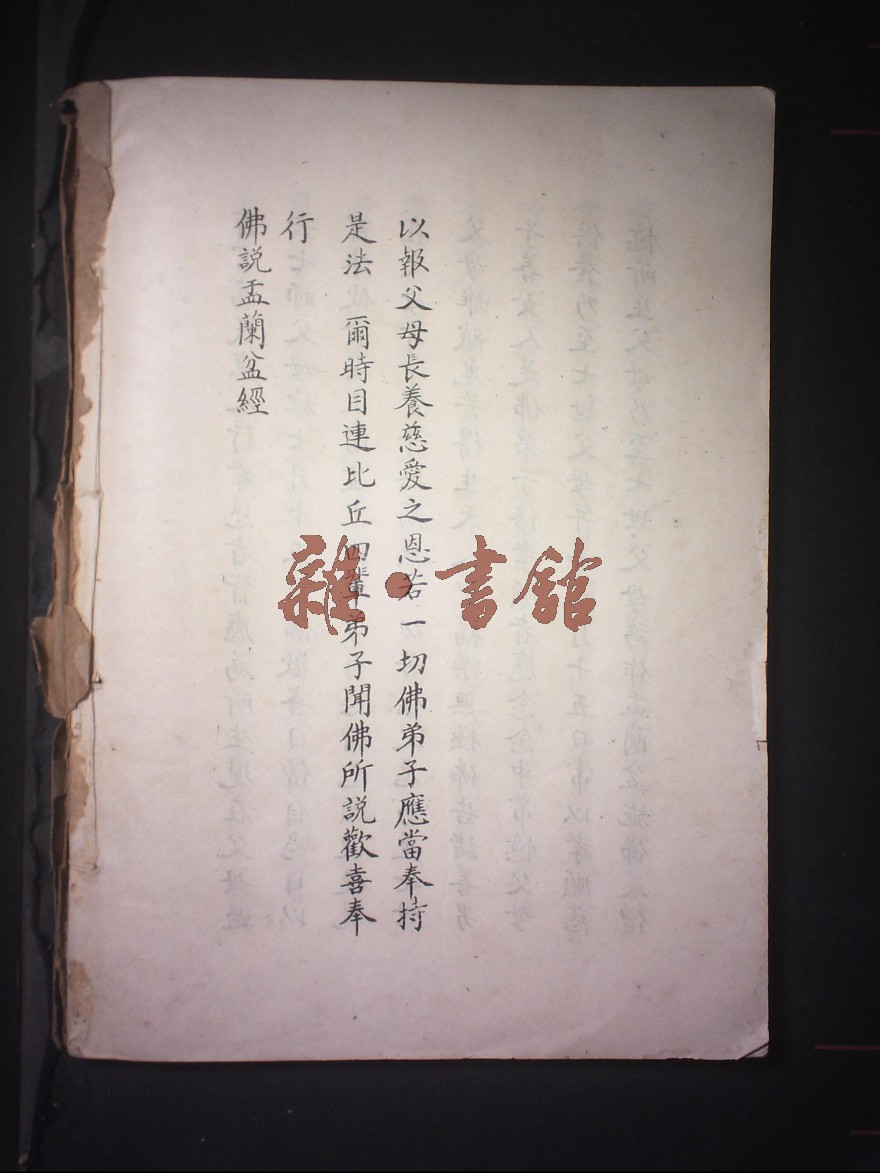 以報父母長養慈愛之恩若一切佛弟子應當奉持
是法 爾時目連比丘四輩弟子聞佛所説歡喜奉
行
佛説盂蘭盆經
雜·書舘